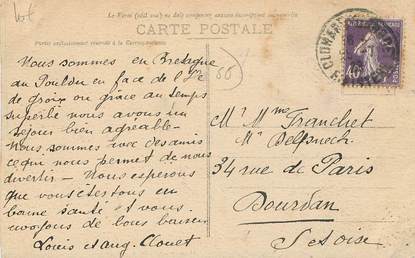 Lot
Le Verso
CARTE POSTALE
Partie exclusivement réservée à la Correspondance
Nous sommes en Bretagne
au Pouldu en face de l'Ile
de groix ou grâce au temps
superbe nous avons un
séjour bien agreable -
Nous sommes avec des amis
ce qui nous permet de nous
divertir - Nous esperons
que vous êtes tous en
bonne santé et vous
envoyons de bons baisers
Louis et Aug. Clouet
66
40
Mr Mme Franchet
34 rue de Paris
Dourdan
S et Oise